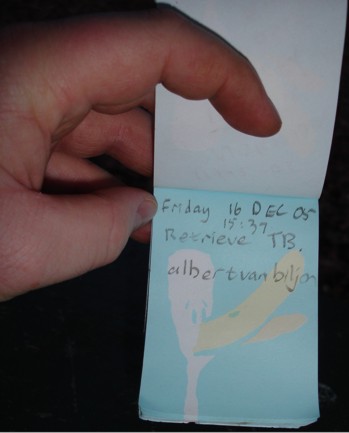 Friday 16 DEC 05
15:37
Retrieve TB.
albertvanbiljon